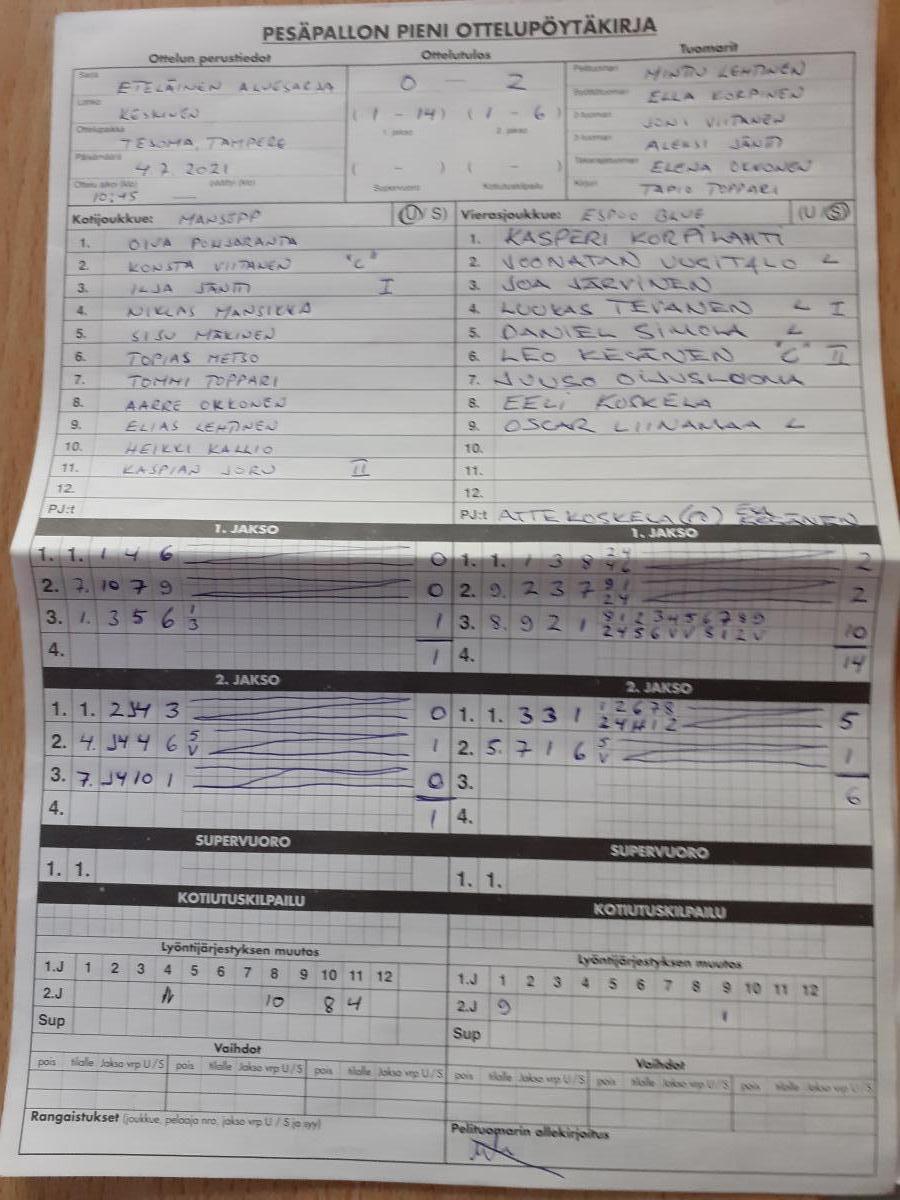 PESÄPALLON PIENI OTTELUPÖYTÄKIRJA
Ottelun perustiedot Ottelutulos Tuomarit
Sarja ETELÄINEN ALUESARJA
Lohko KESKINEN
Ottelupaikka TESOMA, TAMPERE
Päivämäärä 4.7.2021
Ottelu alkoi (klo) päättyi (klo)
10:45 —
0 — 2
(1 - 14) (1 - 6)
1. jakso 2. jakso
( - ) ( - )
Supervuoro Kotiutuskilpailu
Pelituomari MINTTU LEHTINEN
Syöttötuomari ELLA KORPINEN
2-tuomari JONI VIITANEN
3-tuomari ALEKSI JÄNTTI
Takarajatuomari ELENA OKKONEN
Kirjuri TAPIO TOPPARI
Kotijoukkue: MANSEPP (U/S) Vierasjoukkue: ESPOO BLUE (U/S)
1. OIVA POHJARANTA 1. KASPERI KORPILAHTI
2. KONSTA VIITANEN "C" 2. JOONATAN UUSITALO L
3. ILJA JÄNTTI I 3. JOA JÄRVINEN
4. NIKLAS MANSIKKA 4. LUUKAS TEVANEN L I
5. SISU MÄKINEN 5. DANIEL SIMOLA L
6. TOPIAS METSO 6. LEO KESÄNEN "C" II
7. TOMMI TOPPARI 7. JUUSO OIJUSLUOMA
8. AARRE OKKONEN 8. EELI KOSKELA
9. ELIAS LEHTINEN 9. OSCAR LIINAMAA L
10. HEIKKI KALLIO 10.
11. KASPIAN JORU II 11.
12. 12.
PJ:t PJ:t ATTE KOSKELA KESÄNEN
1. JAKSO 1. JAKSO
1. 1. 1 4 6 0 1. 1. 1 3 8 2 4 2
4 6
2. 7. 10 7 9 0 2. 9. 2 3 7 9 1 2
2 4
3. 1. 3 5 6 1 1 3. 8. 9 2 1 8 1 2 3 4 5 6 7 8 9 10
3 2 4 5 6 V V 8 1 2 V
4. 1 4. 14
2. JAKSO 2. JAKSO
1. 1. 2 J4 3 0 1. 1. 3 3 1 1 2 6 7 8 5
2 4 1 2
2. 4. J4 4 6 5 1 2. 5. 7 1 6 5 1
V V
3. 7. J4 10 1 0 3. 6
4. 1 4.
SUPERVUORO SUPERVUORO
1. 1. 1. 1.
KOTIUTUSKILPAILU KOTIUTUSKILPAILU
Lyöntijärjestyksen muutos Lyöntijärjestyksen muutos
1.J 1 2 3 4 5 6 7 8 9 10 11 12 1.J 1 2 3 4 5 6 7 8 9 10 11 12
2.J 10 8 4 2.J 9 1
Sup Sup
Vaihdot Vaihdot
pois tilalle Jakso vrp U/S pois tilalle Jakso vrp U/S pois tilalle Jakso vrp U/S pois tilalle Jakso vrp U/S pois tilalle Jakso vrp U/S pois tilalle Jakso vrp U/S
Rangaistukset (joukkue, pelaaja nro, jakso vrp U / S ja syy) Pelituomarin allekirjoitus